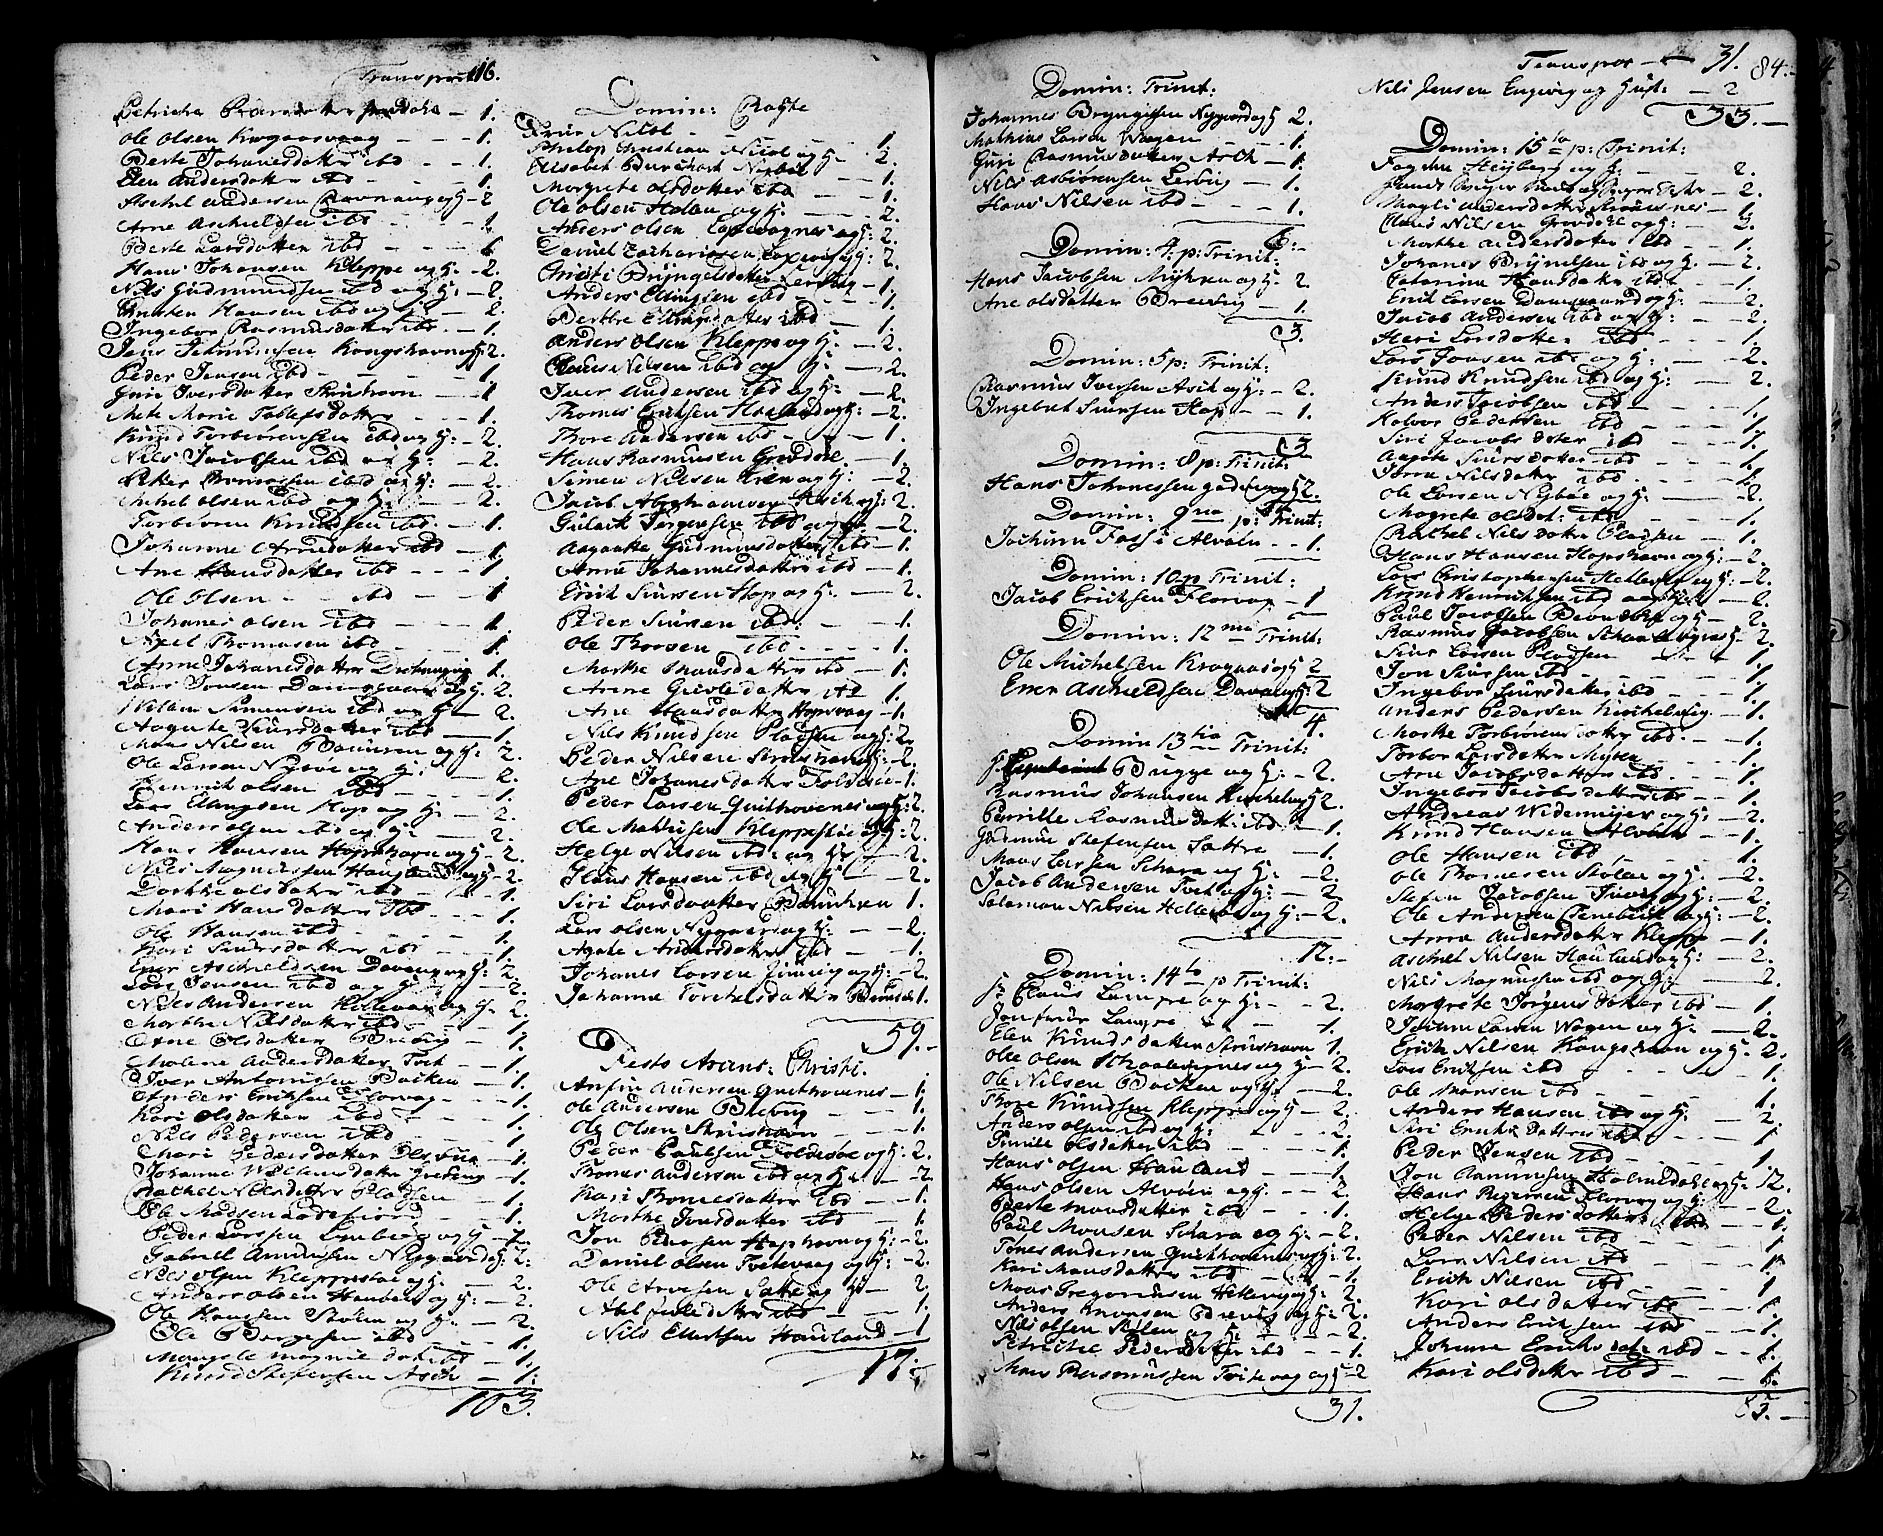 Transport 16.
Petriche Pedersdatter — 1.
Ole Olsen Kragaasvaag — 1.
Berte Johanesdatter ibd — 1.
Elen Andersdatter ibd — 1.
Aschel Andersen Ravnanger og H — 2
Arne Aschieldsen ibd — 1.
Berte Larsdatter ibd — 1
Hans Johansen Kleppe og H: — 2.
Nils Gudmundsen ibd og H: — 2.
Christen Hansen ibd og H: 2.
Ingebor Rasmusdatter ibd. — 1.
Jens Kongshavn og H: 2.
Peder Jensen ibd — 1
Guri Iversdatter Strushavn — 1
Mete Marie Tollefsdatter — 1.
Knud Torbiørensen ibd og H: — 2.
Nils Jacobsen ibd og H: — 2.
Peter ibd og H: — 2.
Michel Olsen ibd og H: — 2.
Torbiørn Knudsen ibd. — 1.
Johanne Arnedatter ibd — 1.
Ane Hansdatter ibd — 1
Ole Olsen ibd — 1
Johanes Olsen ibd — 1.
Axel Thomasen ibd — 1.
Anne Johanesdatter — 1.
Lars Jonsen Damsgaard og H: 2.
Willum Simensen ibd og H — 2.
Aagate Siursdatter ibd — 1.
Mons Nilsen og H: 2.
Ole Larsen Nybøe og H: — 2.
Henrik Olsen ibd — 1.
Lars Ellingsen Hop og H: — 2.
Anders Olsen ibd og H: — 2.
Hans Hansen Hopshavn og H — 2.
Nils Magnussen Hauland og H — 2.
Dorthe Olsdatter ibd — 1.
Mari Hansdatter ibd — 1.
Ole Hansen ibd — 1.
Kari Siursdatter ibd — 1.
Ener Aschieldsen Davang og H: 2.
Lars Jensen ibd og H — 2.
Niels Andersen Hellevaag og H — 2.
Marthe Nilsdatter ibd — 1.
Ane Olsdatter Brevig — 1.
Malene Andersdatter Tvet — 1.
Iver Antonisen Backen — 1.
Anders Eriksen Florvaag — 1.
Kari Olsdatter ibd — 1.
Nils Pedersen ibd — 1.
Mari Pedersdatter Olsvig — 1.
Johanne Willumsdatter — 1.
Rachel Nilsdatter Pladsen — 1.
Ole Madsen — 1.
Peder Larsen og H — 2.
Gabriel Nygaard og H: 2.
Nils Olsen Kleppestøe og H: 2.
Anders Olsen Hauland og H: — 2.
Ole Hansen Stølen og H: — 2.
Ole Børgesen ibd — 1.
Mangele Magnedat: ibd — 1.
Knud Stefensen Asch — 1.
103.
Domin: Rogte
Frue Nicol — 1.
Philip Christian Nicol og H — 2.
Elisabet Burchart — 1.
Margrete Olsdatter ibd — 1.
Ole Olsen Holen og H: — 2.
Anders Olsen og H: 2.
Daniel Zachariasen og H: 2.
Christi Bryngelsdatter Lervig — 1.
Anders Ellingsen ibd — 1.
Berthe Ellingsdatter ibd — 1.
Anders Olsen Kleppe og H: — 2.
Claus Nilsen ibd og H: — 2.
Iver Andersen ibd og H: — 2.
Thomes Erichsen Hauland og H: — 2.
Thore Andersen ibd — 1.
Hans Rasmusen Grevdal — 1.
Simen Nilsen og H: — 2.
Jacob Abrahamsen Asch og H: 2.
Gulach Jørgensen ibd og H — 2.
Aagaate Gudmunsdatter ibd — 1.
Anne Johannesdatter ibd — 1.
Erich Siursen Hop og H: — 2.
Peder Siursen ibd: — 1.
Ole Thorsen ibd — 1.
Marthe Knudsdatter ibd — 1.
Anne ibd — 1.
Ane Hansdatter Hopsvaag — 1.
Nils Knudsen Pladsen og H: 2.
Peder Nilsen Strushavn og H: — 2.
Ane Johanesdatter Foldesøe — 1.
Peder Larsen Quithovenes og H: 2.
Ole Mathisen Kleppestøe og H: 2.
Helge Nilsen ibd: og H: — 2.
Hans Hansen ibd og H — 2.
Siri Larsdaatter 1.
Lars Olsen Nygaard og H: — 2.
Agate Andersdatter ibd — 1.
Johanes Larsen og H: — 2.
Johanne Torchelsdatter 1.
59.
Festo Ascens: Christi.
Anfin Andersen Quithovenes — 1.
Ole Andersen Brevig — 1.
Ole Olsen Strushavn — 1.
Peder Paulsen Foldesøe og H: 2.
Thomes Andersen ibd og H — 2.
Kari Thomesdatter ibd — 1.
Marthe Iversdatter ibd — 1.
Jon Pedersen Hopshavn og H: 2.
Daniel Olsen Tvetevaag og H: — 2.
Ole Arnesen Sætre og H — 2
Abel ibd — 1.
Nils Ellertsen Hauland — 1
17.
Domin: Trinit:
Johannes Bryngelsen Nygaard og H 2.
Mathias Larsen Wagen — 1.
Guri Rasmusdatter Asch — 1.
Nils Asbiørensen Lervig — 1.
Hans Nilsen ibd — 1.
6.
Domin: 4: p: Trinit:
Hans Jacobsen Myhren og H: 2.
Ane Olsdatter Brevig — 1.
3.
Domin: 5 p: Trinit:
Rasmus Iversen Asch og H: — 2.
Ingebret Siursen Hop — 1.
3
Domin: 8 p: Trinit:
Hans Johanessen og H 2.
Domin: 9na p: Trinit:
Jochum Foss i Alvøen — 1.
Domin: 10 p Trinit:
Jacob Erichsen Florvag — 1
Domin: 12me Trinit:
Ole Michelsen Kragaas og H 2
Ener Aschieldsen Davang og H: 2
4.
Domin 13tia Trinit:
Bugge og H: — 2.
Rasmus Johansen Kirchelvig 2.
Pernille Rasmusdatt: ibd — 1.
Gudmun Stefensen Sætre — 1.
Mons Larsen Schara og H: — 2.
Jacob Andersen Tvet og H: — 2
Salemon Nilsen Hellevig og H: — 2.
12.
Domin: 14to p Trinit:
Hr Claus Lampe og H: — 2.
Jonfrue Lampe — 1.
Elen Knudsdatter Strushavn 1.
Ole Olsen Schaalevignes og H — 2.
Ole Nilsen Backen og H: — 2.
Thore Knudsen Kleppe og H — 2.
Anders Olsen ibd og H: — 2.
Pernille Olsdatter ibd — 1.
Hans Olsen Hauland — 1.
Hans Olsen Alvøen og H: — 2.
Berte Monsdatter ibd — 1.
Paul Monsen Schara og H: — 2.
Tones Andersen Quithovenes og H: 2.
Kari Monsdatter ibd — 1.
Mons Gregoriusen Hellevig og H: 2.
Anders Monsen Brevig og H: 2.
Nils Olsen Stølen og H — 2.
Petriche Pedersdatter ibd — 1.
Mons Rasmussen Tvitevaag og H — 2
31.
Transpor — 31. 84.
Nils Jensen Engevig og Hust: — 2
33.
Domin: 15ta p: Trinit:
Fogden Heyberg og H: — 2.
— 2.
Magli Andersdatter Strusnes — 1
Claus Nilsen Grevdal og H: — 2.
Marthe Andersdatter ibd — 1.
Johanes Brynelsen ibd og H. — 2.
Catarina Hansdatter ibd — 1.
Erik Larsen Damsgaard og H: — 2.
Jacob Andersen ibd og H: — 2.
Kari Larsdatter ibd — 1.
Lars Jonsen ibd og H: — 2.
Knud Knudsen ibd og H: — 2.
Anders Jacobsen ibd — 1.
Halvor Pedersen ibd — 1.
Siri Jacobsdatter ibd — 1.
Aagate Siursdatter ibd — 1.
Anna Nilsdatter ibd — 1.
Ole Larsen Nybøe og H: — 2.
Magrete Olsdat: ibd — 1.
Rachel Nilsdatter Pladsen — 1.
Hans Hansen Hopshavn og H: — 2.
Lars Christophersen Hellevig og H: — 2.
Knud Henrichsen ibd og H — 2.
Paul Jacobsen og H: — 2.
Rasmus Jacobsen Schaalevignes og H: 2.
Siur Larsen Pladsen — 1.
Jon Siursen ibd — 1.
Ingebor Siursdatter ibd — 1.
Anders Pedersen Kirchelvig — 1.
Marthe Torbiørnsdatter ibd. — 1.
Torbor Larsdatter Myren — 1.
Ane Jacobsdatter ibd. — 1.
Ingebor Jacobsdatter ibd — 1.
Andreas Widemeyer og H: — 2.
Knud Hansen Alvøen — 1.
Ole Hansen ibd — 1.
Ole Thomesen Stølen og H: — 2.
Stefen Jacobsen og H: — 2.
Ole Andersen og H: — 2.
Anna Andersdatter Kleppe — 1.
Aschel Nilsen Hauland og H: — 2.
Nils Magnusen ibd og H: — 2.
Margrete Jørgensdatter ibd — 1.
Jochum Larsen Wagen og H: — 2.
Erich Nilsen Kongshavn og H: — 2.
Lars Eriksen ibd — 1.
Ole Monsen ibd — 1.
Anders Hansen ibd og H: — 2.
Siri Erichsdatter ibd — 1
Peder Jensen ibd — 1
Jon Holmedahl og H: — 2.
Hans Florvag og H: — 2.
Helge Pedersdatter ibd — 1.
Peder Nilsen ibd — 1
Lars Nilsen ibd — 1
Erich Nilsen ibd — 1
Kari Olsdatter ibd — 1
Anders Eriksen ibd — 1.
Johanne Erichsdat: ibd — 1.
Kari Olsdatter ibd — 1.
85.